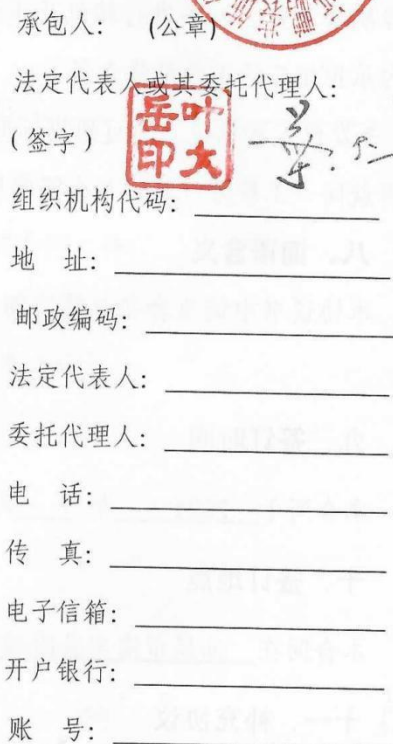 承包人： （公章）
法定代表人或其委托代理人：
（签字）
叶大岳印
组织机构代码：
地 址：
邮政编码：
法定代表人：
委托代理人：
电 话：
传 真：
电子信箱：
开户银行：
账 号：